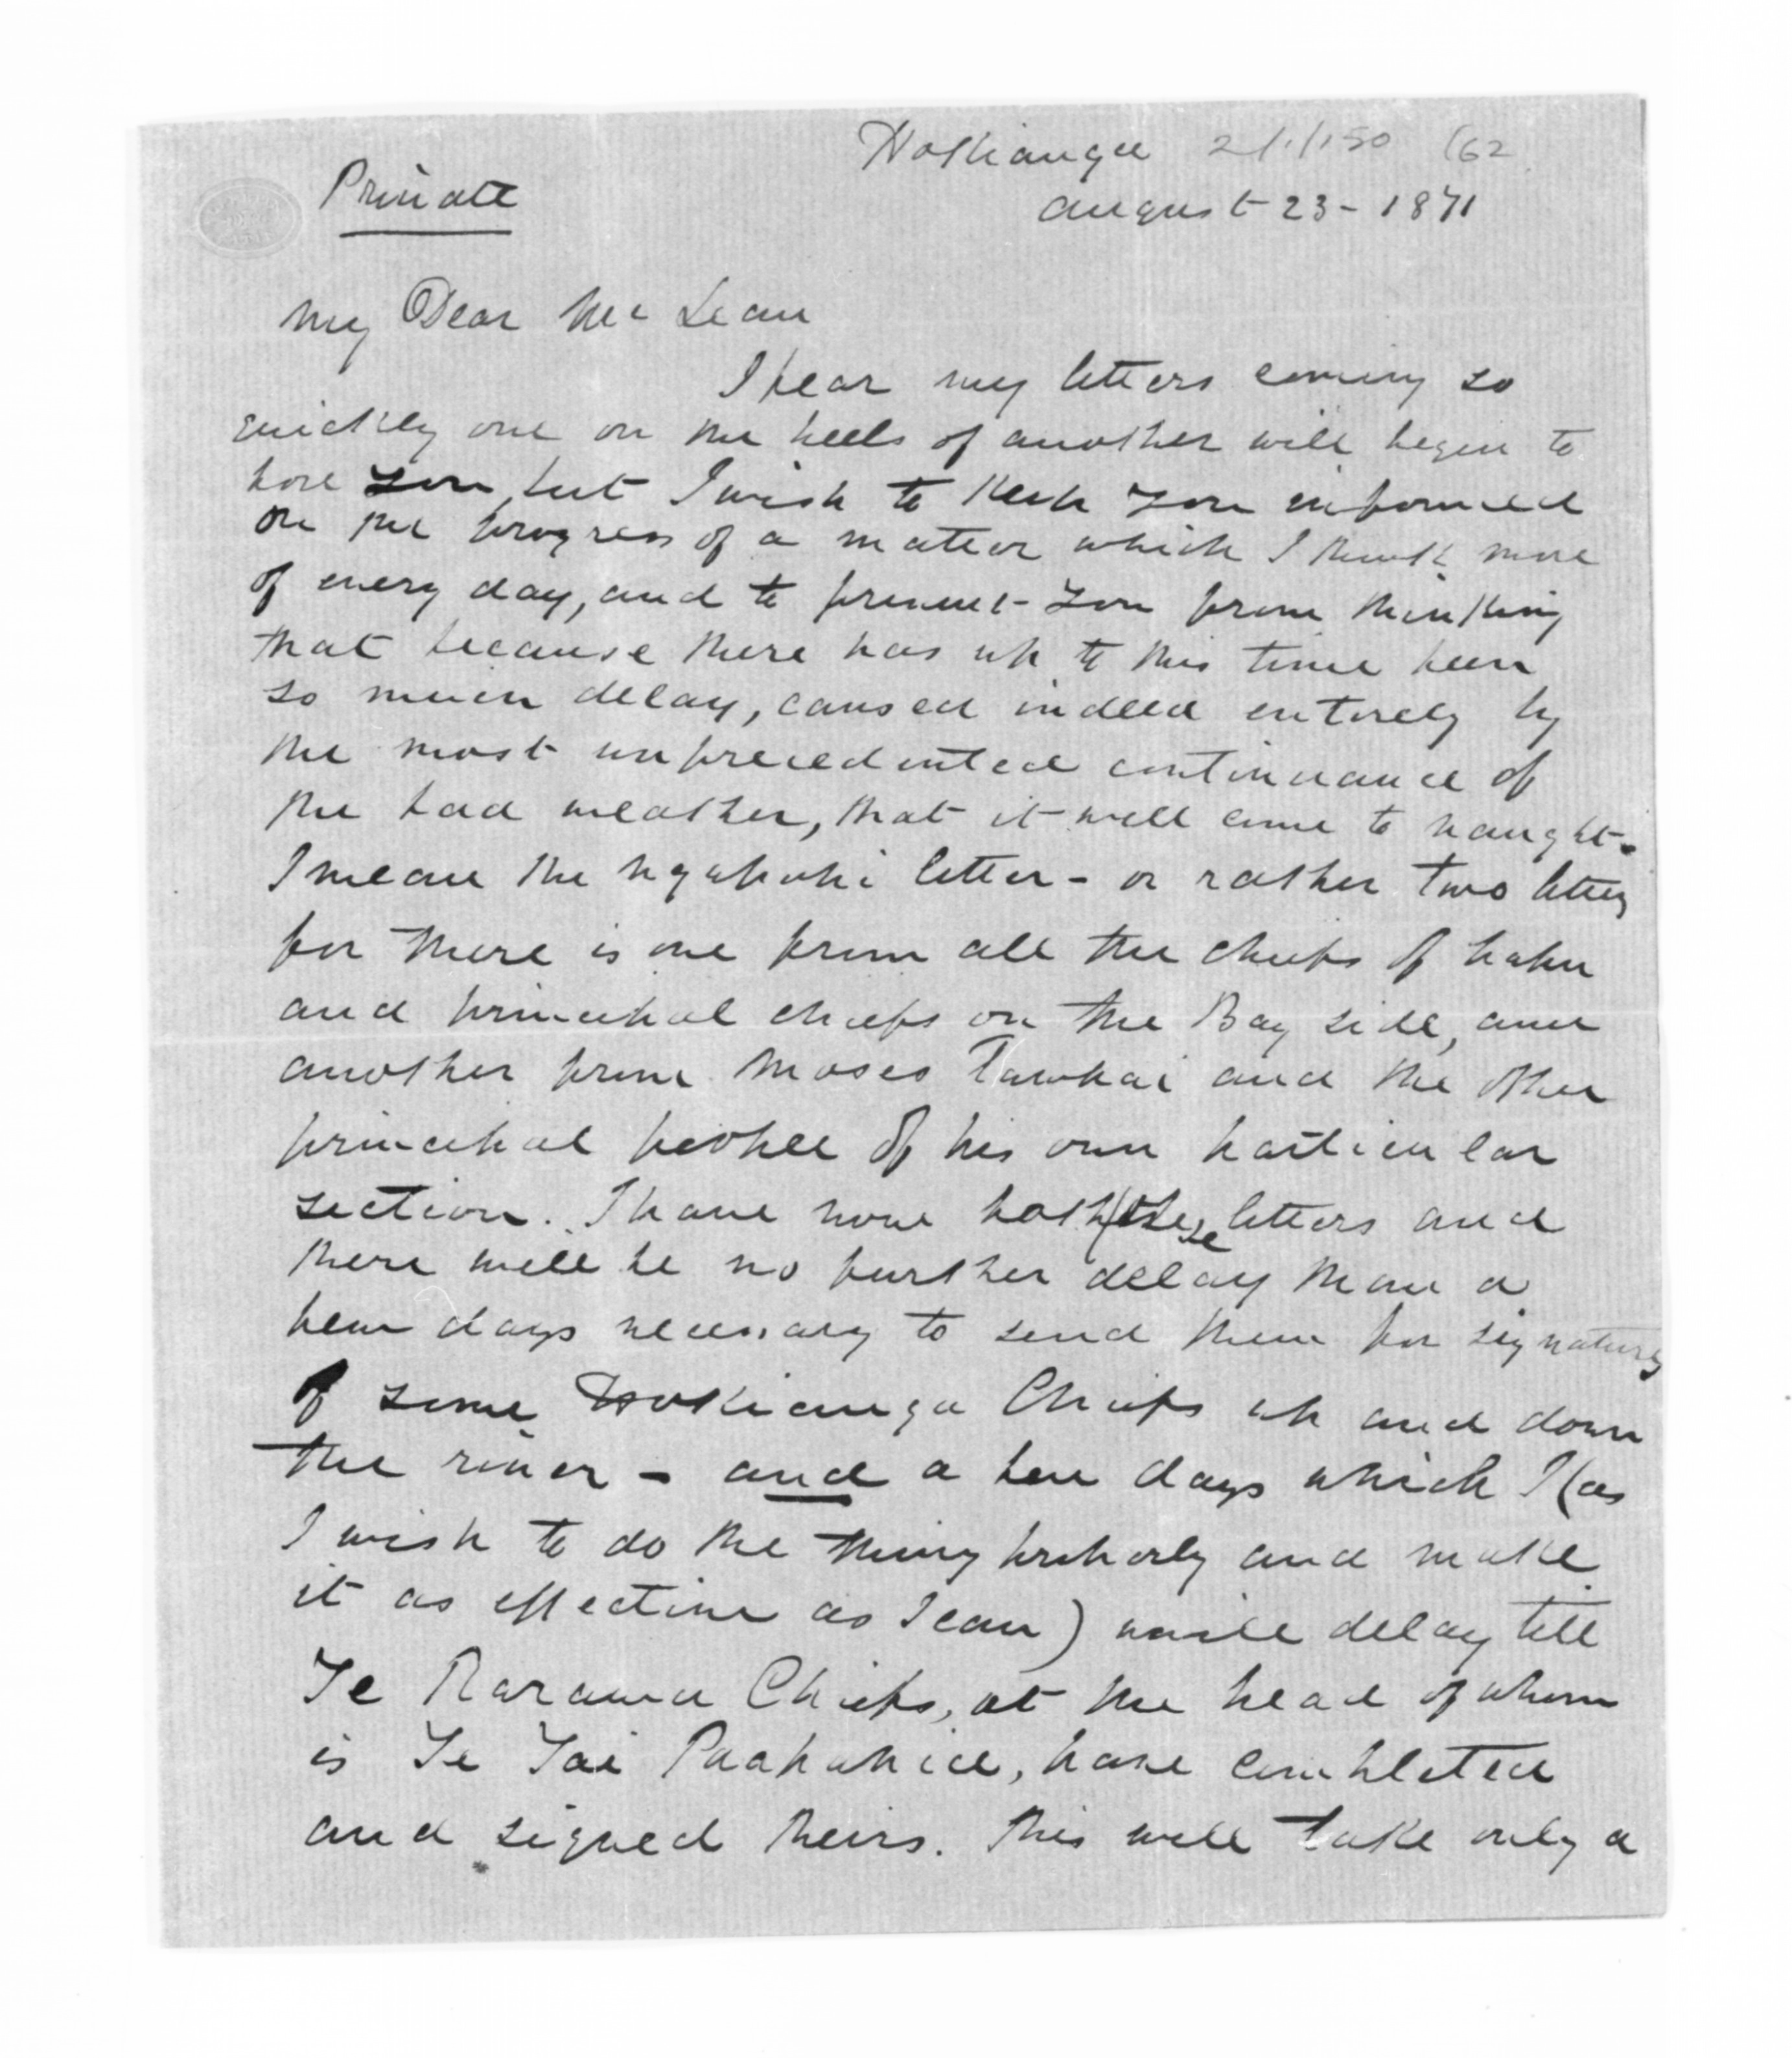 Hokianga 2/1/150 (62
Private
August 23 - 1871
My Dear McLean
I fear my letters coming so
quickly one on the heels of another will begin to
bore you, but I wish to keep you informed
on the progress of a matter which I think more
of every day, and to prevent you from thinking
that because there has up to this time been
so much delay, caused indeed entirely by
the most unprecedented continuance of
the bad weather, that it will come to naught.
I mean the Ngapuhi letter - or rather two letters
for there is one from all the chiefs of hapu
and principal chiefs on the Bay side, and
another from Moses Tawhai and the other
principal people of his own particular
section. I have now both these letters and
there will be no further delay than a
few days necessary to send them for signatures
of some Hokianga Chiefs up and down
the river - and a few days which I (as
I wish to do the thing properly and make
it as effective as I can) will delay till
Te Rarawa Chiefs, at the head of whom
is Te Tai Papahia, have completed
and signed theirs. This will take only a